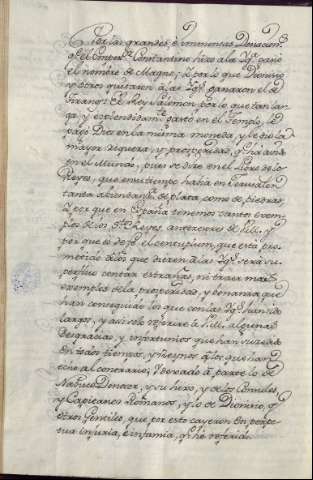 Por las grandes, è immensas Donacion.s
q.e el Emper.r Constantino hizo a la Ygl.a ganó
el nombre de Magno; y por lo que Dionisio
y otros quitaron à las Ygl.s ganaron el de
tiranos. El Rey Salomon por lo que tan lar-
ga, y esplendidam.te gastó en el Templo, le
pagó Dios en la misma moneda, y le dio la
mayor riqueza y prosperidad, q.e hà auido
en el Mundo, pues se dize en el Libro de los
Reyes, que en su tiempo hauia en Jerusalen
tanta abundan.a de plata, como de piedras.
Y por que en España tenemos tantos exem-
plos de los S.res Reyes, antecesores de V.M. y
por que lo dejo el centuplum, que està pro-
metido à los que dieren a las Ygl.s serà su-
perfluo contar estraños, ni traer mas
exemplos de la prosperidad, y bonanza que
han conseguido los que con las Ygl.s han sido
largos, y assi solo referire à V.M. algunas
desgracias, y infortunios que han sucedido
en todos tiempos, y Reynos à los que han
hecho al contrario; Y dexado à parte lo de
Nabuco Donosor, y su hijo, y de los Consules,
y Capitanes Romanos, y lo de Dionisio, y
otros Gentiles, que por esto cayeron en perpe-
tua injuria, è infamia, q.e hè referido.